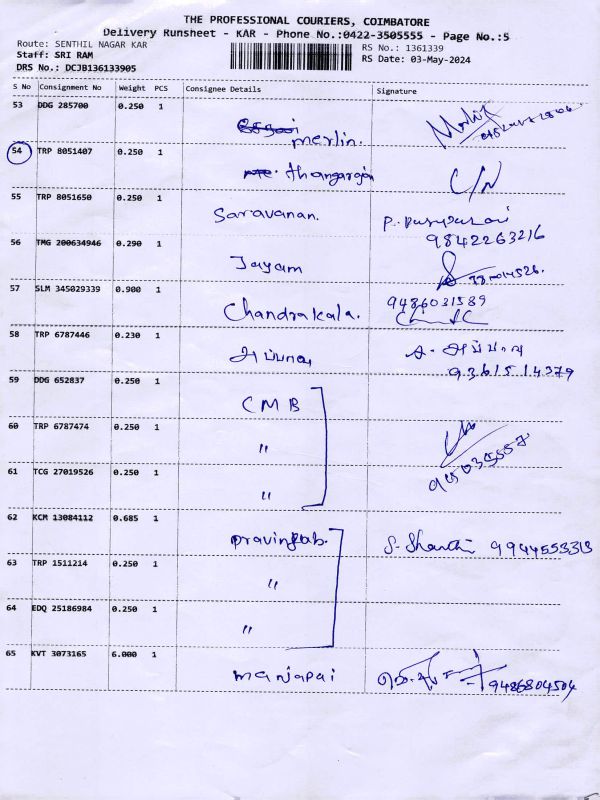 THE PROFESSIONAL COURIERS, COIMBATORE
Delivery Runsheet - KAR - Phone No.:0422-3505555 - Page No.:5
Route: SENTHIL NAGAR KAR
Staff: SRI RAM
DRS No.: DCJB136133905
RS No.: 1361339
RS Date: 03-May-2024
S No Consignment No Weight PCS Consignee Details Signature
53 DDG 285700 0.250 1
merlin.
54 TRP 8051407 0.250 1
thangarajan C/N
55 TRP 8051650 0.250 1
Saravanan.
9842263216
56 TMG 200634946 0.290 1
Jayam
57 SLM 345029339 0.900 1 9486031589
Chandrakala.
58 TRP 6787446 0.230 1
அப்பாவு
9361514379
59 DDG 652837 0.250 1
CMB
60 TRP 6787474 0.250 1
"
61 TCG 27019526 0.250 1
"
62 KCM 13084112 0.685 1
S. Shanthi 9944553313
63 TRP 1511214 0.250 1
"
64 EDQ 25186984 0.250 1
"
65 KVT 3073165 6.000 1
manjapai
9486804504